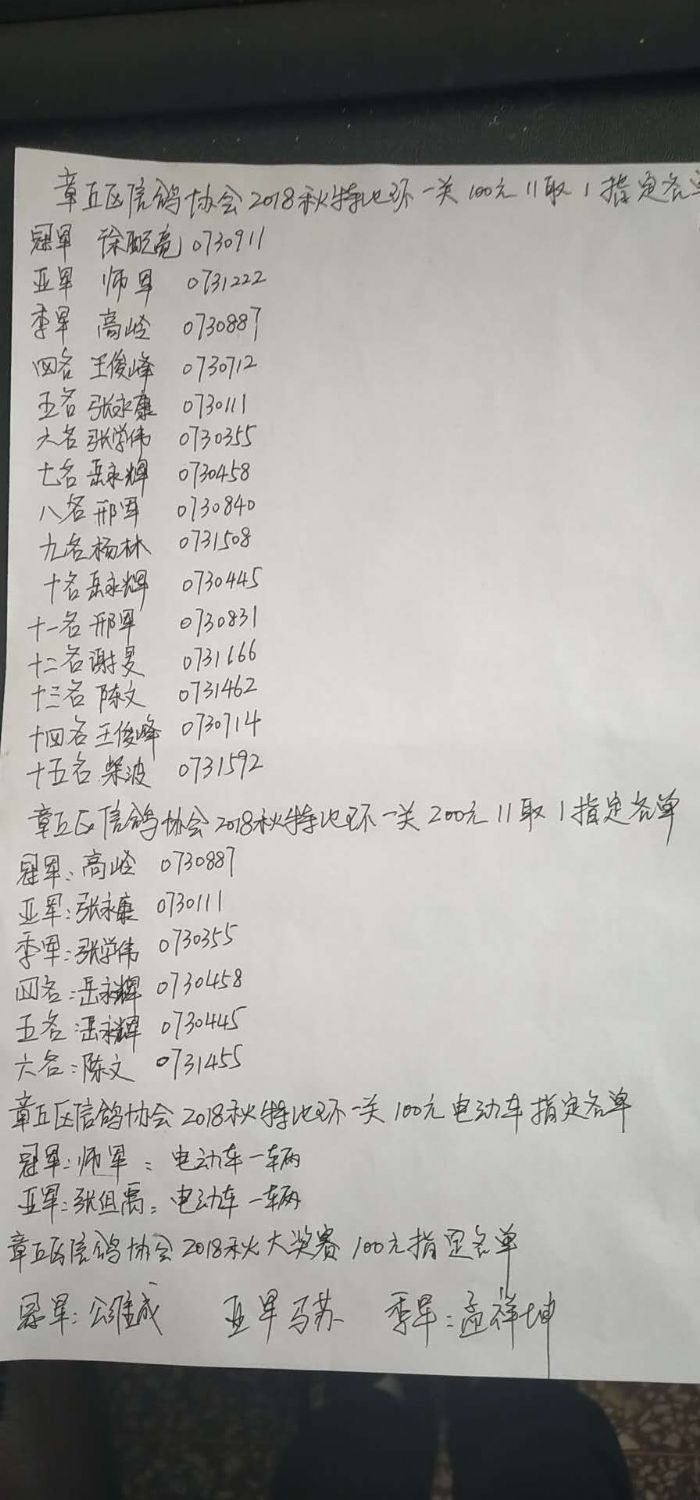 章丘区信鸽协会2018秋特比环一关100元11取1指定名单
冠军 徐 亮 0730911
亚军 师军 0731222
季军 高峰 0730887
四名 王俊峰 0730712
五名 张永康 0730111
六名 张学伟 0730355
七名 岳永辉 0730458
八名 邢军 0730840
九名 杨林 0731508
十名 岳永辉 0730445
十一名 邢军 0730831
十二名 谢旻 0731666
十三名 陈文 0731462
十四名 王俊峰 0730714
十五名 柴波 0731592
章丘区信鸽协会2018秋特比环一关200元11取1指定名单
冠军:高峰 0730887
亚军:张永康 0730111
季军:张学伟 0730355
四名:岳永辉 0730458
五名:岳永辉 0730445
六名:陈文 0731455
章丘区信鸽协会2018秋特比环一关100元电动车指定名单
冠军:师军:电动车一辆
亚军:张但禹:电动车一辆
章丘区信鸽协会2018秋大奖赛100元指定名单
冠军:公维成 亚军马苏 季军:孟祥坤